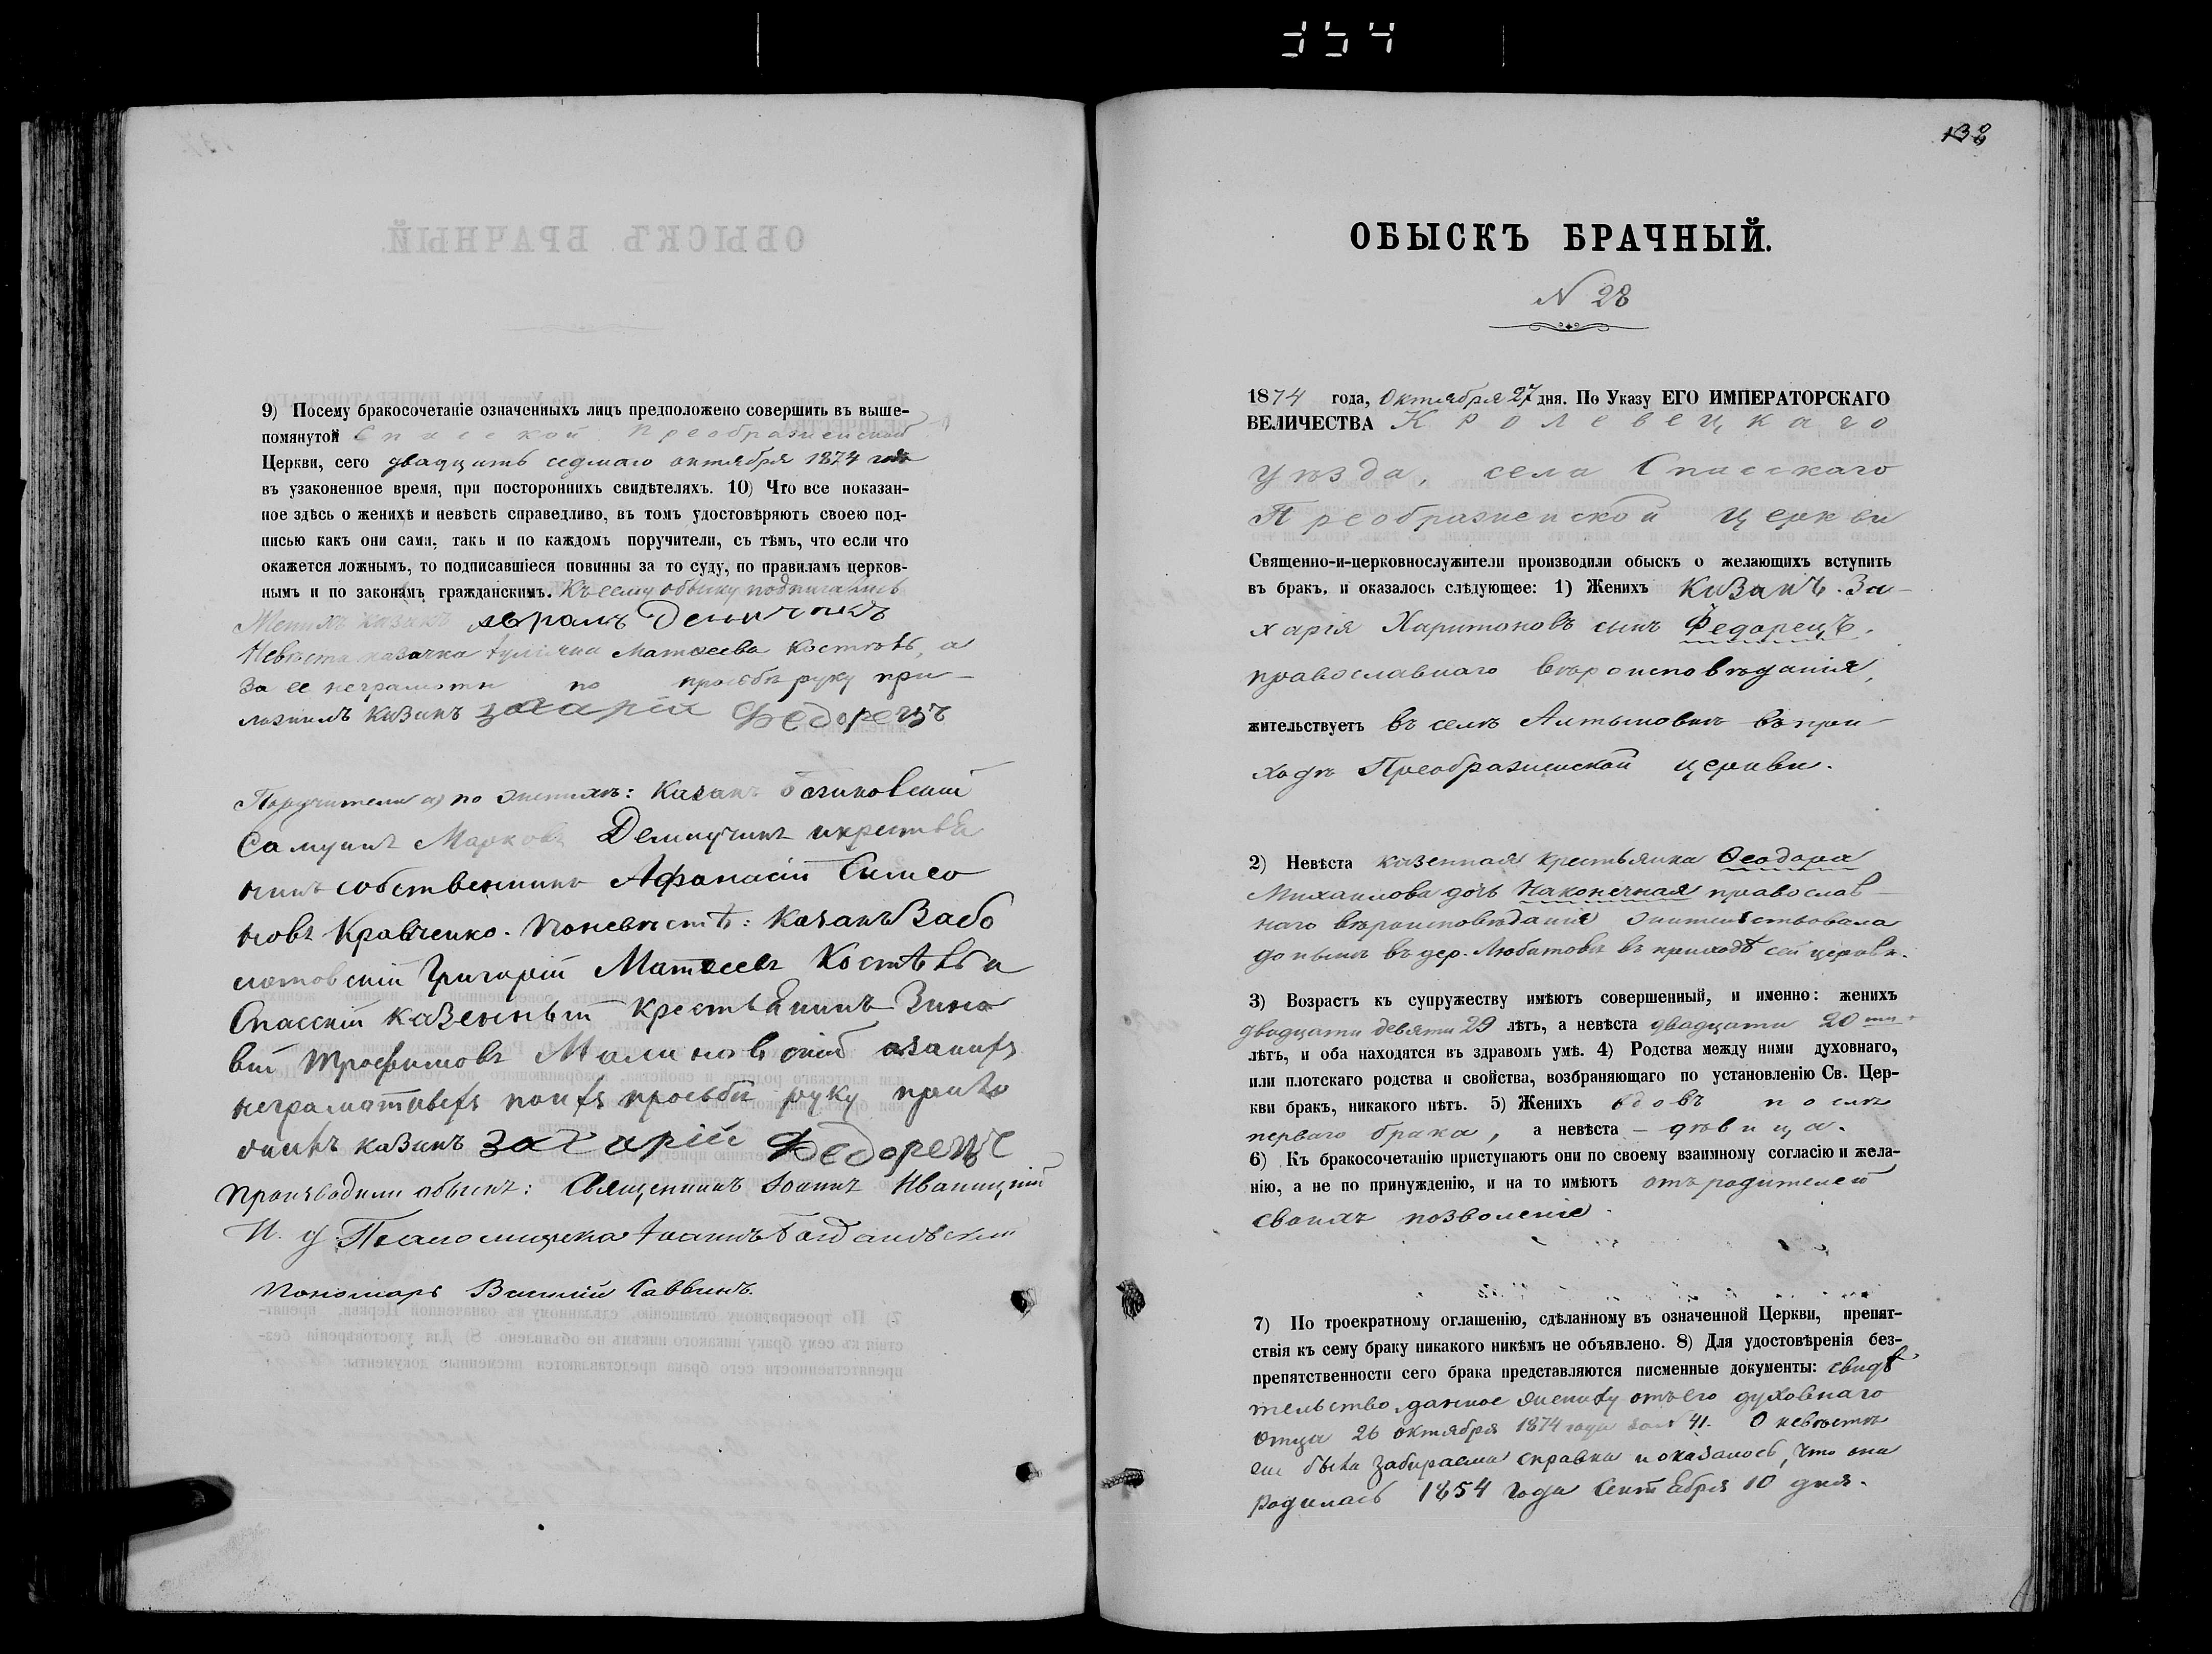 9) Посему бракосочетаніе означенныхъ лицъ предположено совершить въ выше-
помянутой Спасской Преображенской
Церкви, сего двадцать седмаго октября 1874 года
въ узаконенное время, при постороннихъ свидѣтеляхъ. 10) Что все показан-
ное здѣсь о женихѣ и невѣстѣ справедливо, въ томъ удостовѣряютъ своею под-
писью какъ они сами, такъ и по каждомъ поручители, съ тѣмъ, что если что
окажется ложнымъ, то подписавшіеся повинны за то суду, по правиламъ церков-
нымъ и по законамъ гражданскимъ. Къ сему обыску подписались
Женихъ казакъ
Невѣста казачка Матѳеева а
за ее неграмотн по просьбѣ руку при-
ложилъ казакъ захарій Федорецъ
Поручители а) по женихѣ: Казакъ
Самуилъ Марковъ крестья
нинъ собственникъ Афанасій Симео
новъ Кравченко. По невѣстѣ: казакъ Забо
лотовскій Григорій Матѳеевъ а
Спасскій казенный крестьянинъ Зино
вій Трофимовъ Малиновскій а за ихъ
неграмотныхъ по ихъ просьбѣ руку прило
жилъ казакъ захарій Федорецъ
Производили обыскъ: Священникъ Іоаннъ Иваницкій
И. д. Псаломщика Іоаннъ Богдановскій
Пономарь Василій Саввинъ.
354
132
ОБЫСКЪ БРАЧНЫЙ.
N 28
1874 года, Октября 27 дня. По Указу ЕГО ИМПЕРАТОРСКАГО
ВЕЛИЧЕСТВА Кролевецкаго
уѣзда, села Спасскаго
Преображенской церкви
Священно-и-церковнослужители производили обыскъ о желающихъ вступить
въ бракъ, и оказалось слѣдующее: 1) Женихъ казакъ За-
харія Харитоновъ сынъ Федорецъ,
православнаго вѣроисповѣданія,
жительствуетъ въ селѣ Алтыновкѣ въ при-
ходѣ Преображенской церкви.
2) Невѣста казенная крестьянка Ѳеодора
Михаилова дочь Наконечная православ-
наго вѣроисповѣданія жительствовала
до нынѣ въ дер. Любитовѣ въ приходѣ сей церкви.
3) Возрастъ къ супружеству имѣютъ совершенный, и именно: женихъ
двадцати девяти 29 лѣтъ, а невѣста двадцати 20 ти
лѣтъ, и оба находятся въ здравомъ умѣ. 4) Родства между ними духовнаго,
или плотскаго родства и свойства, возбраняющаго по установленію Св. Цер-
кви бракъ, никакого нѣтъ. 5) Женихъ вдовъ послѣ
перваго брака, а невѣста – дѣвица.
6) Къ бракосочетанію приступаютъ они по своему взаимному согласію и жела-
нію, а не по принужденію, и на то имѣютъ отъ родителей
своихъ позволеніе.
7) По троекратному оглашенію, сдѣланному въ означенной Церкви, препят-
ствія къ сему браку никакого никѣмъ не объявлено. 8) Для удостовѣренія без-
препятственности сего брака представляются писменные документы: свидѣ
тельство данное жениху отъ его духовнаго
отца 26 октября 1874 года за N 41. О невѣстѣ
же была забираема справка и оказалось, что она
родилась 1854 года Сентября 10 дня.